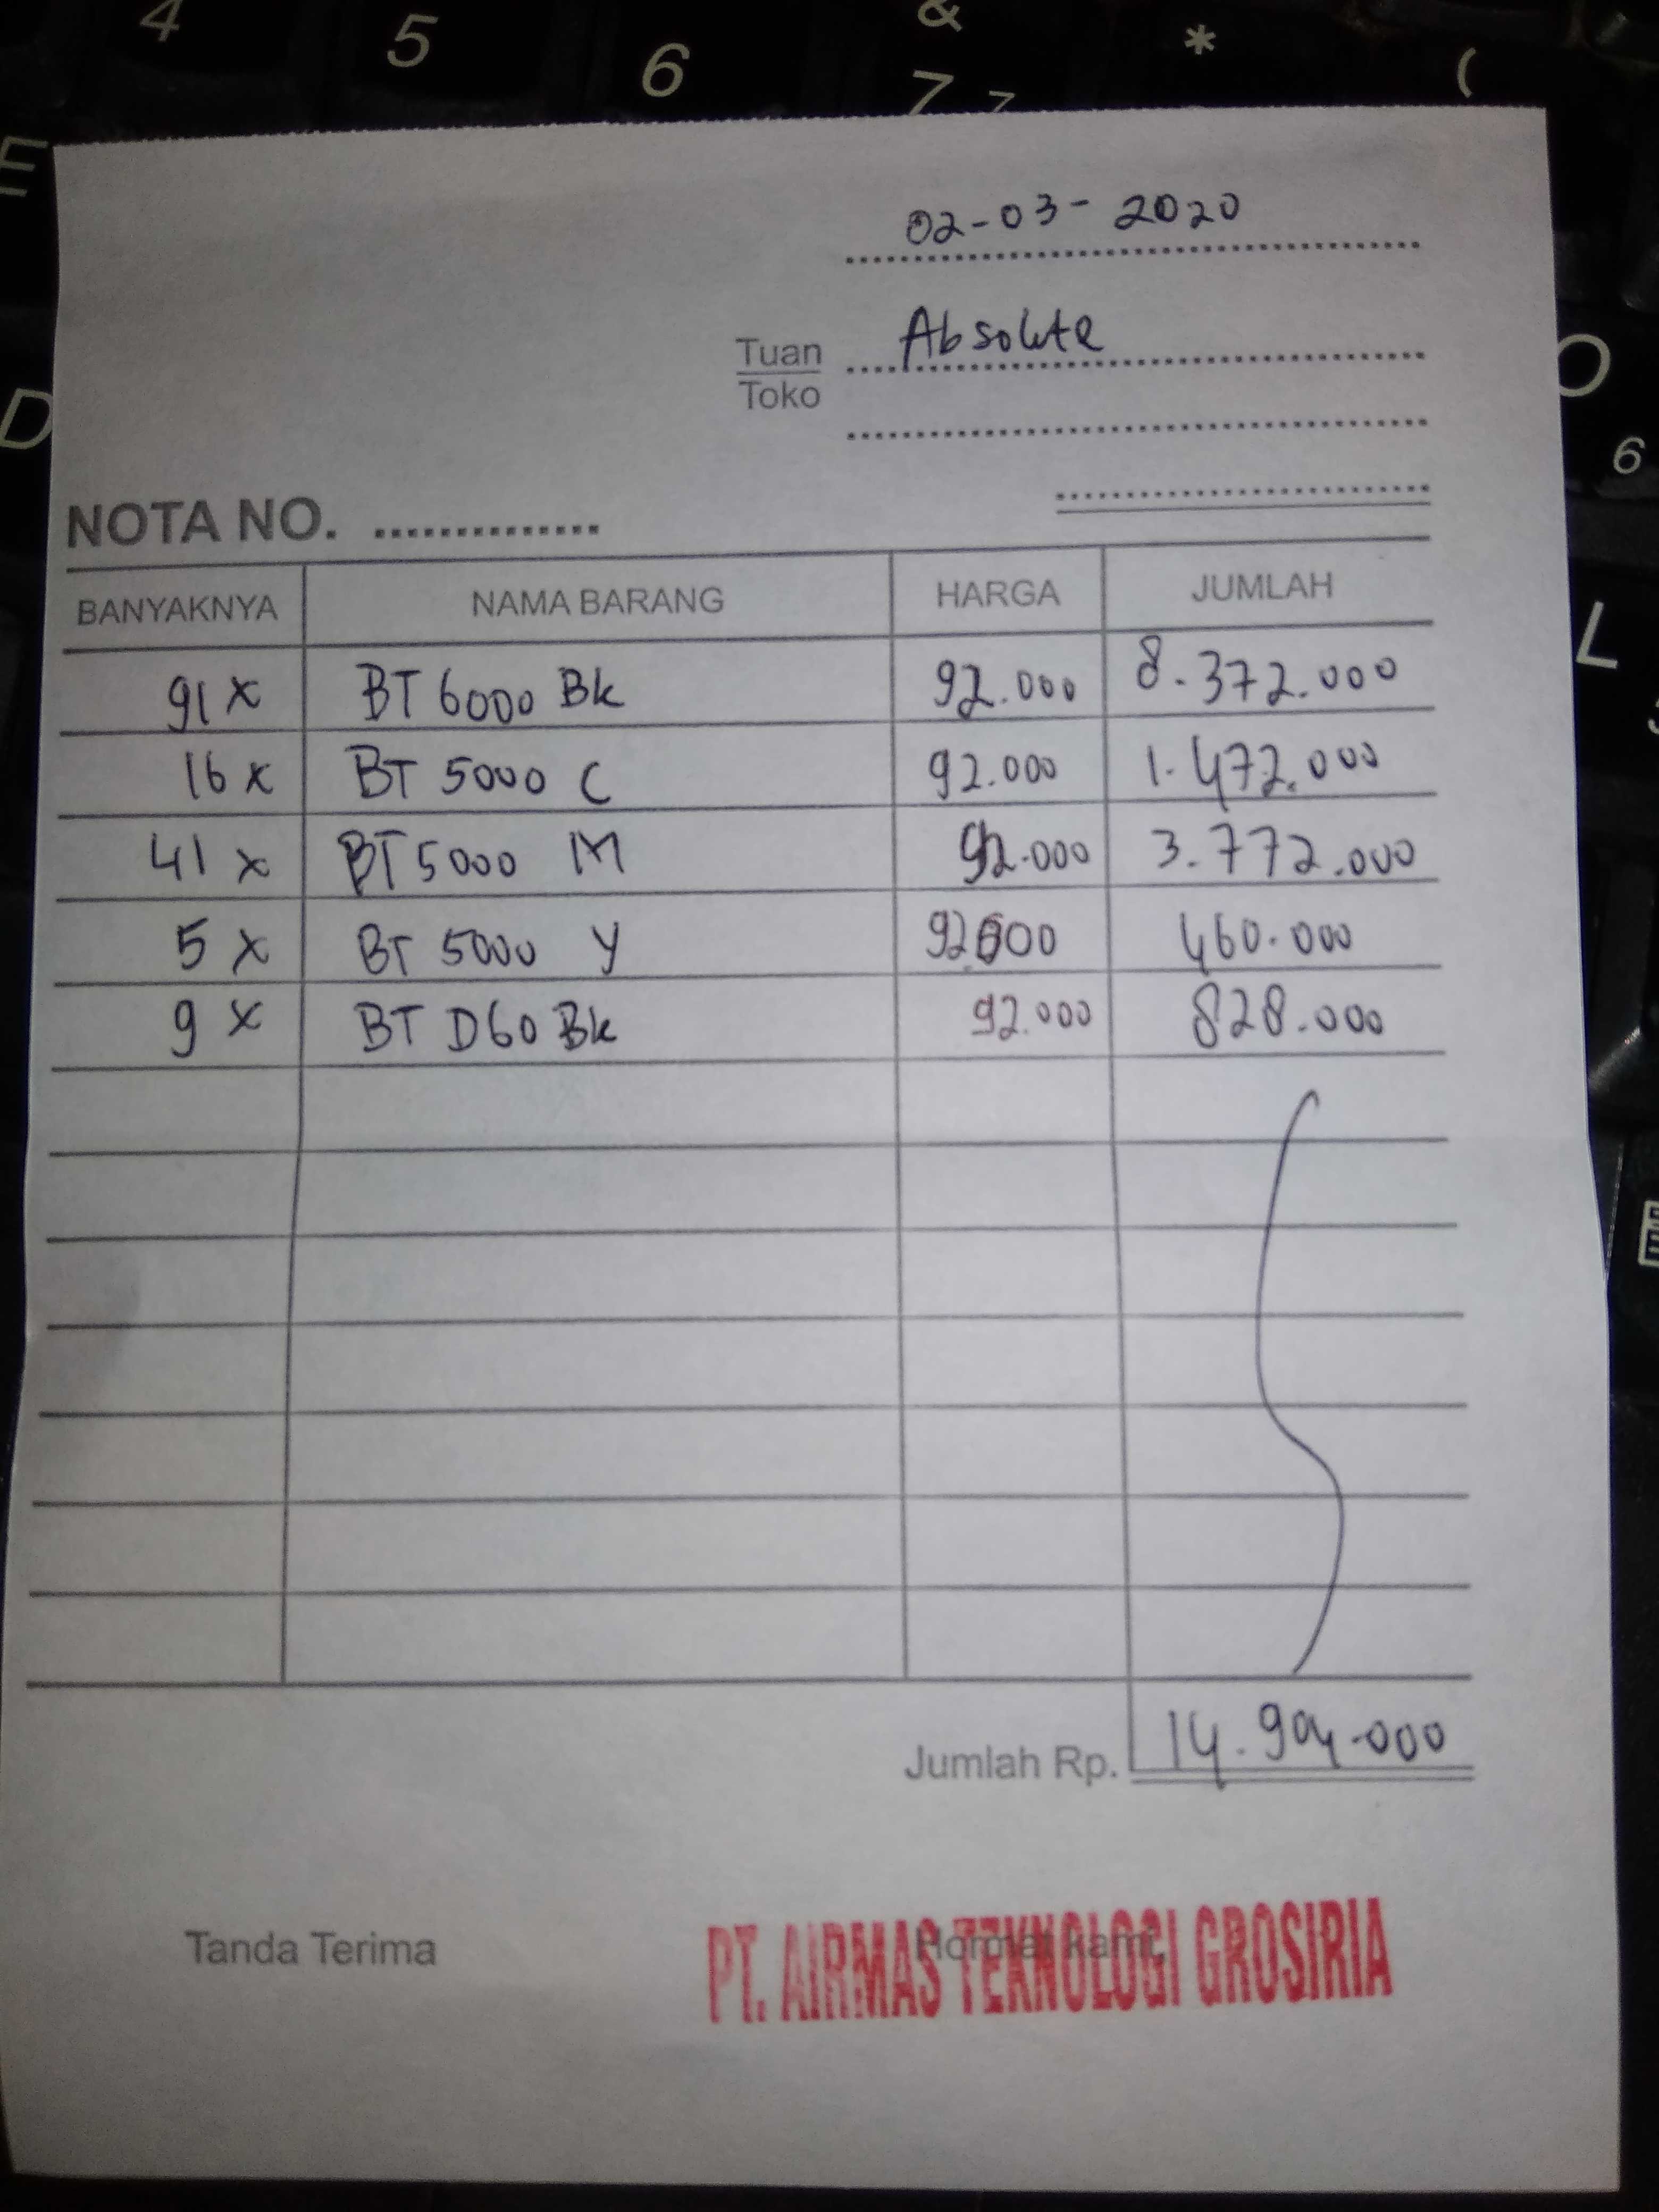 4 5 6 & 7 7 * (
E
D
O
6
L
02-03-2020
Tuan Absolute
Toko
NOTA NO. ..............
BANYAKNYA NAMA BARANG HARGA JUMLAH
91 x BT 6000 Bk 92.000 8.372.000
16 x BT 5000 C 92.000 1.472.000
41 x BT 5000 M 92.000 3.772.000
5 x BT 5000 Y 92.000 460.000
9 x BT D60 Bk 92.000 828.000
Jumlah Rp. 14.904.000
Tanda Terima Hormat kami,
PT. AIRMAS TEKNOLOGI GROSIRIA